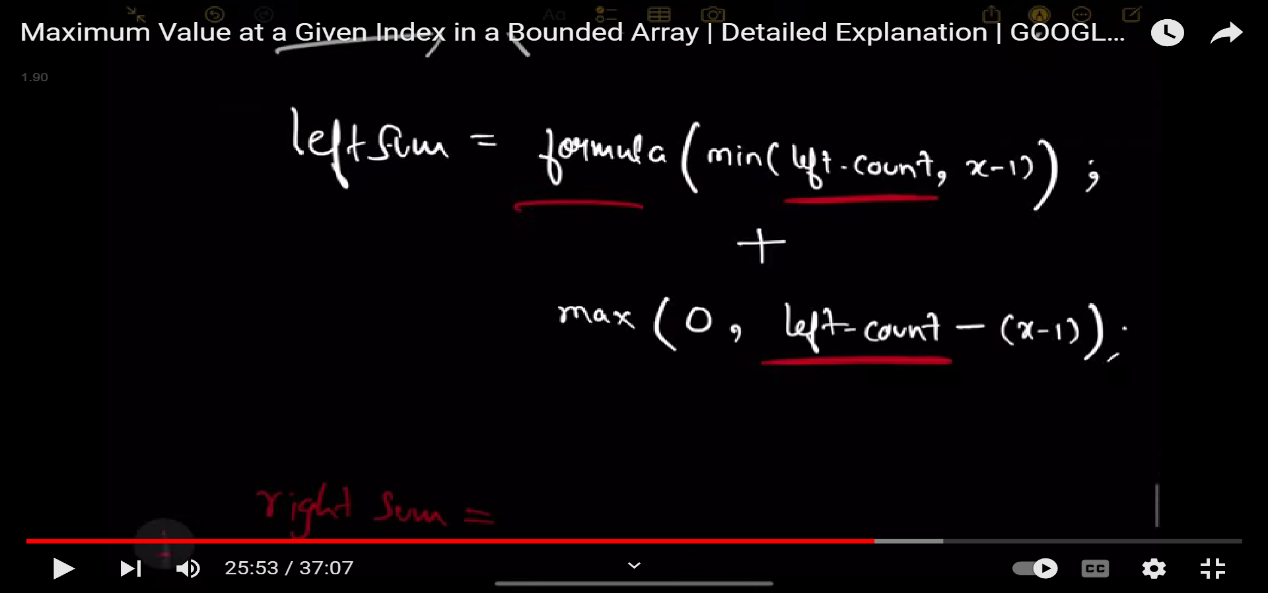 Maximum Value at a Given Index in a Bounded Array | Detailed Explanation | GOOGL...
1.90
leftSum = formula(min(left-count, x-1));
+
max(0, left-count - (x-1));
right Sum =
25:53 / 37:07
CC